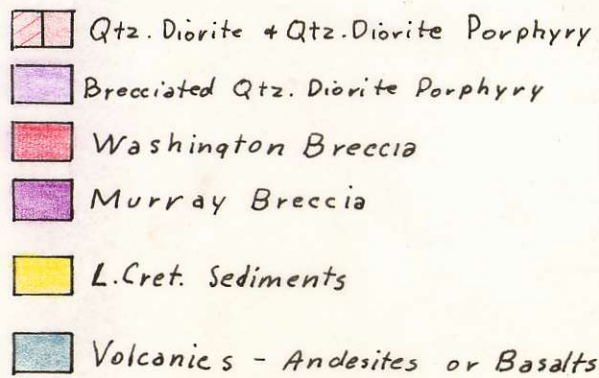 Qtz. Diorite & Qtz. Diorite Porphyry
Brecciated Qtz. Diorite Porphyry
Washington Breccia
Murray Breccia
L. Cret. Sediments
Volcanics - Andesites or Basalts